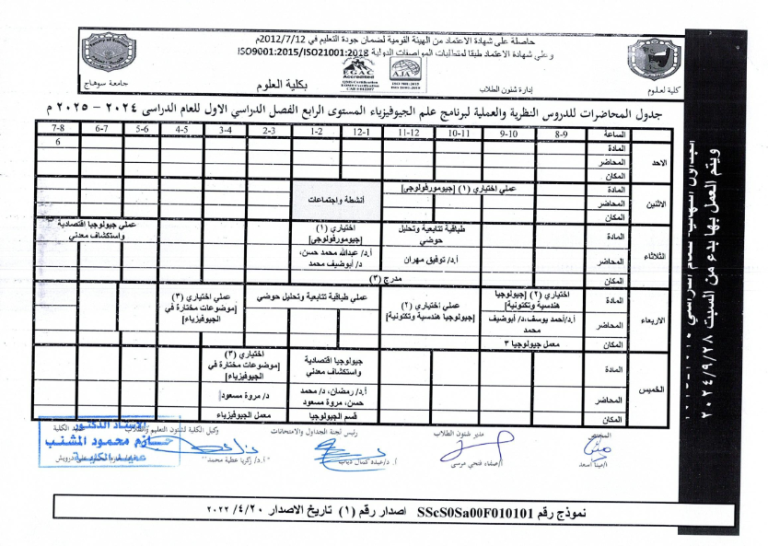 حاصلة على شهادة الاعتماد من الهيئة القومية لضمان جودة التعليم في 2012/7/12م
وعلى شهادة الاعتماد طبقا لمتطلبات المواصفات الدولية ISO9001:2015/ISO21001:2018
EGAC
AJA
كلية العلوم
إدارة شئون الطلاب
بكلية العلوم
جامعة سوهاج
جدول المحاضرات للدروس النظرية والعملية لبرنامج علم الجيوفيزياء المستوى الرابع الفصل الدراسي الاول للعام الدراسى ٢٠٢٤ - ٢٠٢٥ م
الساعة 8-9 9-10 10-11 11-12 12-1 1-2 2-3 3-4 4-5 5-6 6-7 7-8
الاحد
المادة 6
المحاضر
المكان
الاثنين
المادة عملي اختياري (١) [جيومورفولوجي]
أنشطة واجتماعات
المحاضر
المكان
الثلاثاء
المادة
طباقية تتابعية وتحليل حوضي
اختياري (١) [جيومورفولوجي]
عملي جيولوجيا اقتصادية واستكشاف معدني
المحاضر
أ.د/ توفيق مهران
أ.د/ عبدالله محمد حسن، د/ أبوضيف محمد
المكان مدرج (٣)
الاربعاء
المادة
اختياري (٢) [جيولوجيا هندسية وتكتونية]
عملي اختياري (٢) [جيولوجيا هندسية وتكتونية]
عملي طباقية تتابعية وتحليل حوضي
عملي اختياري (٣) [موضوعات مختارة في الجيوفيزياء]
المحاضر
أ.د/أحمد يوسف،د/ أبوالضيف محمد
المكان معمل جيولوجيا ٣
الخميس
المادة
جيولوجيا اقتصادية واستكشاف معدني
اختياري (٣) [موضوعات مختارة في الجيوفيزياء]
المحاضر
أ.د/ رمضان، د/ محمد حسن، مروة مسعود
د/ مروة مسعود
المكان قسم الجيولوجيا معمل الجيوفيزياء
ويتم العمل بها بدء من السبت ٢٠٢٤/٩/٢٨
مدير شئون الطلاب
رئيس لجنة الجداول والامتحانات
وكيل الكلية لشئون التعليم والطلاب
أ/مينا أسعد
أ/صفاء فتحي مرسى
أ.د/ زكريا عطية محمد
الاستاذ الدكتور
حازم محمود المشنب
عميد الكلية
نموذج رقم SScS0Sa00F010101 اصدار رقم (١) تاريخ الاصدار ٢٠٢٢/٤/٢٠